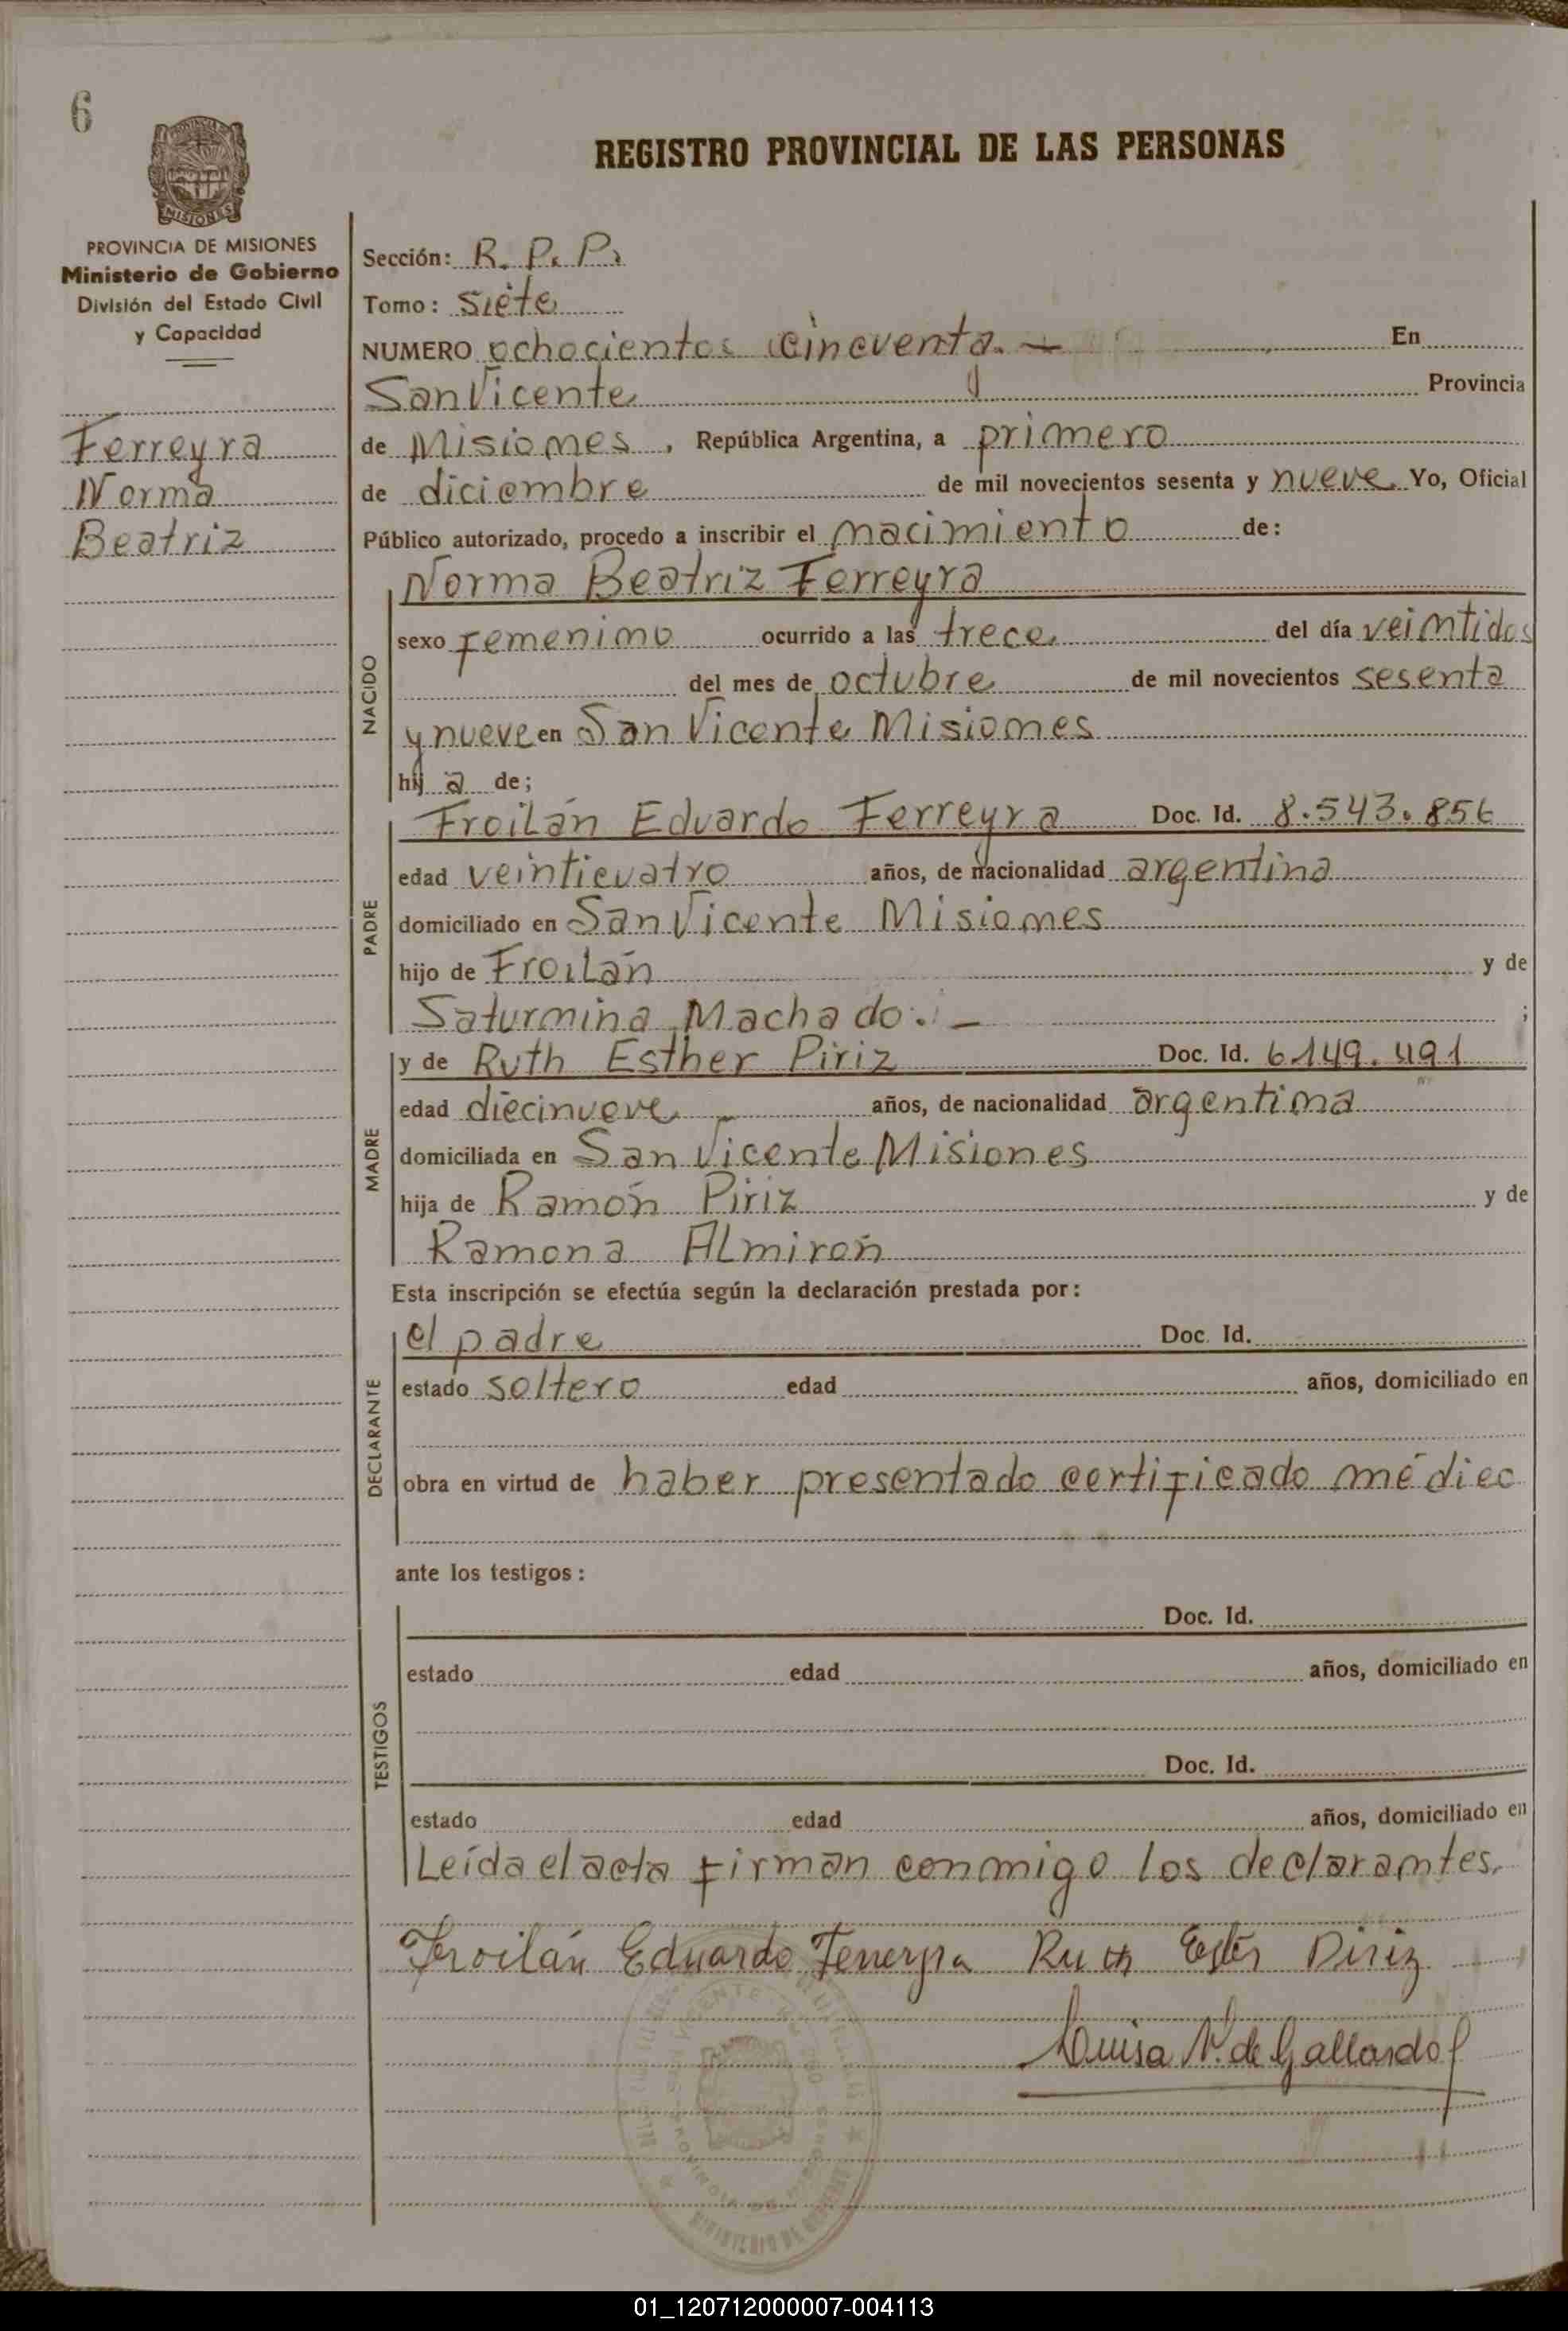 6
PROVINCIA DE MISIONES
Ministerio de Gobierno
División del Estado Civil
y Capacidad
Ferreyra
Norma
Beatriz
REGISTRO PROVINCIAL DE LAS PERSONAS
Sección: R. P. P.
Tomo: siete
NUMERO ochocientos cincuenta. — En
San Vicente Provincia
de Misiones, República Argentina, a primero
de diciembre de mil novecientos sesenta y nueve. Yo, Oficial
Público autorizado, procedo a inscribir el nacimiento de:
NACIDO
Norma Beatriz Ferreyra
sexo femenino ocurrido a las trece del día veintidos
del mes de octubre de mil novecientos sesenta
y nueve en San Vicente Misiones
hij a de;
PADRE
Froilán Eduardo Ferreyra Doc. Id. 8.543.856
edad veinticuatro años, de nacionalidad argentina
domiciliado en San Vicente Misiones
hijo de Froilán y de
Saturnina Machado. — ;
MADRE
y de Ruth Esther Piriz Doc. Id. 6149.491
edad diecinueve años, de nacionalidad argentina
domiciliada en San Vicente Misiones
hija de Ramón Piriz y de
Ramona Almirón
Esta inscripción se efectúa según la declaración prestada por:
DECLARANTE
el padre Doc. Id.
estado soltero edad años, domiciliado en
obra en virtud de haber presentado certificado médico
ante los testigos:
TESTIGOS
Doc. Id.
estado edad años, domiciliado en
Doc. Id.
estado edad años, domiciliado en
Leída el acta firman conmigo los declarantes.
Froilán Eduardo Ferreyra Ruth Ester Piriz
Luisa V. de Gallardo
01_120712000007-004113